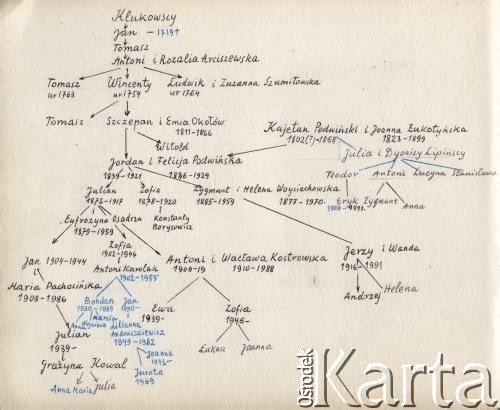 Klukowscy
Jan - 1719+
Tomasz
Antoni i Rozalia Arciszewska
Tomasz
ur 1763
Wincenty
ur 1754
Ludwik i Zuzanna Szumiłowska
ur 1764
Tomasz
Szczepan i Emia Okołów
1811-1866
Witold
Kajetan Podwiński i Joanna Żukotyńska
1802(?)-1868 1823-1899
Julia i Dyonizy Lipińscy
Teodor Antoni Lucyna Stanisława
Eryk Zygmunt Anna
Jordan i Felicja Podwińska
1839-1921 1846-1929
Julian
1872-1917
Zofia
1878-1920
Zygmunt i Helena Woyciechowska
1885-1959 1877-1970
Eufrozyna Osadzca
1879-1959
Konstanty
Borysowicz
Zofia
1902-1944
Antoni Karolak
1902-1955
Jan 1904-1944
Maria Pachocińska
1908-1986
Antoni i Wacława Kostrowska
1909-19 1910-1988
Jerzy i Wanda
1916-1991
Andrzej
Helena
Bohdan
1930-1989
Jan
Marcin
Wojciech
Lilianna
Andruszkiewicz
1949-1982
Ewa
1939-
Zofia
1946-
Łukasz Joanna
Julian
1939-
Grażyna Kowal
Anna Maria Julia
Joanna
1973-
Jurata
1969
Ośrodek
Karta